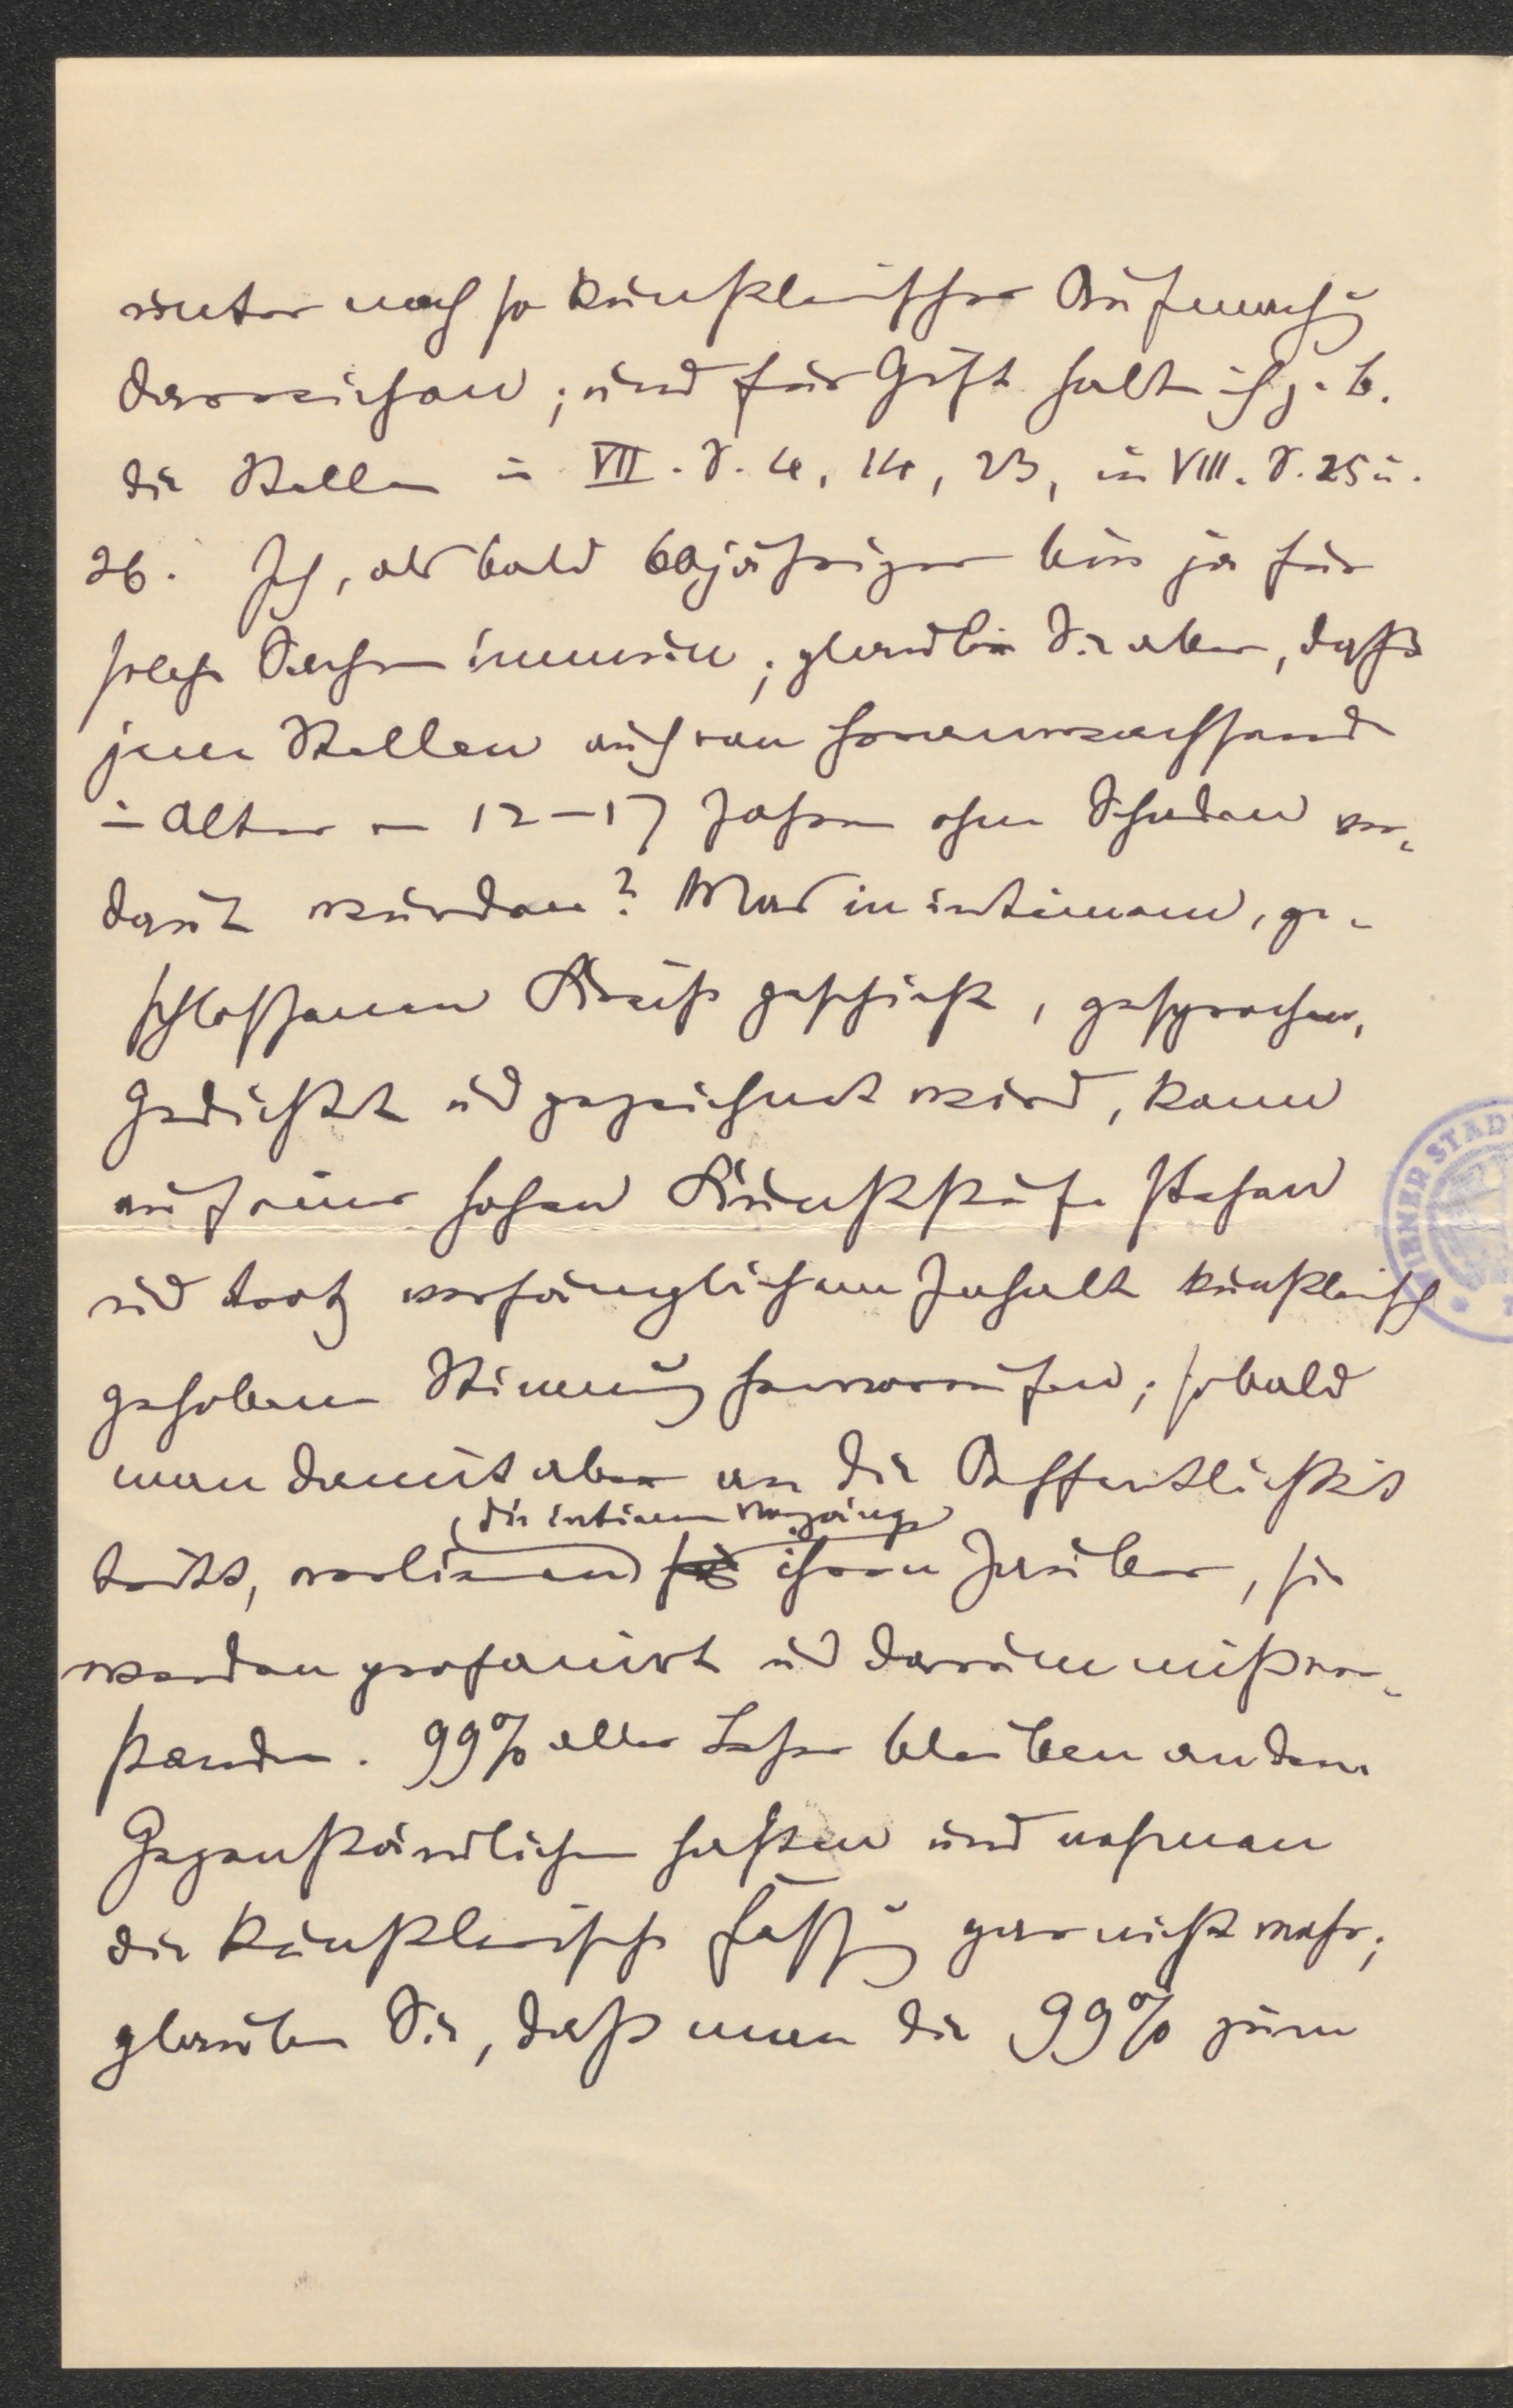 unter noch so künstlerischer Aufmachg
darreichen; und für Gift halte ich z. b.
die Stellen in VII. S. 4, 14, 23, in VIII. S. 25 u.
26. Ich, als bald 60jähriger bin ja für
solche Sachen immun; glauben Sie aber, daß
jene Stellen auch von Heranwachsend
im Alter von 12–17 Jahren ohne Schaden ver-
daut würden? Was in intimem, ge-
schlossenem Kreise geschieht, gesprochen,
gedichtet und gezeichnet wird, kann
auf einer hohen Kunststufe stehen
und trotz verfänglichem Inhalt künstlerisch
gehobene Stimmung hervorrufen; sobald
man damit aber an die Oeffentlichkeit
(die intimen Vorgänge
tritt, verlieren sie ihren Zauber, sie
werden profaniert und darum mißver-
standen. 99% aller Leser bleiben an dem
Gegenständlichen haften und nehmen
die künstlerische Fassg gar nicht wahr;
glauben Sie, daß man die 99% zum
WIENER STAD